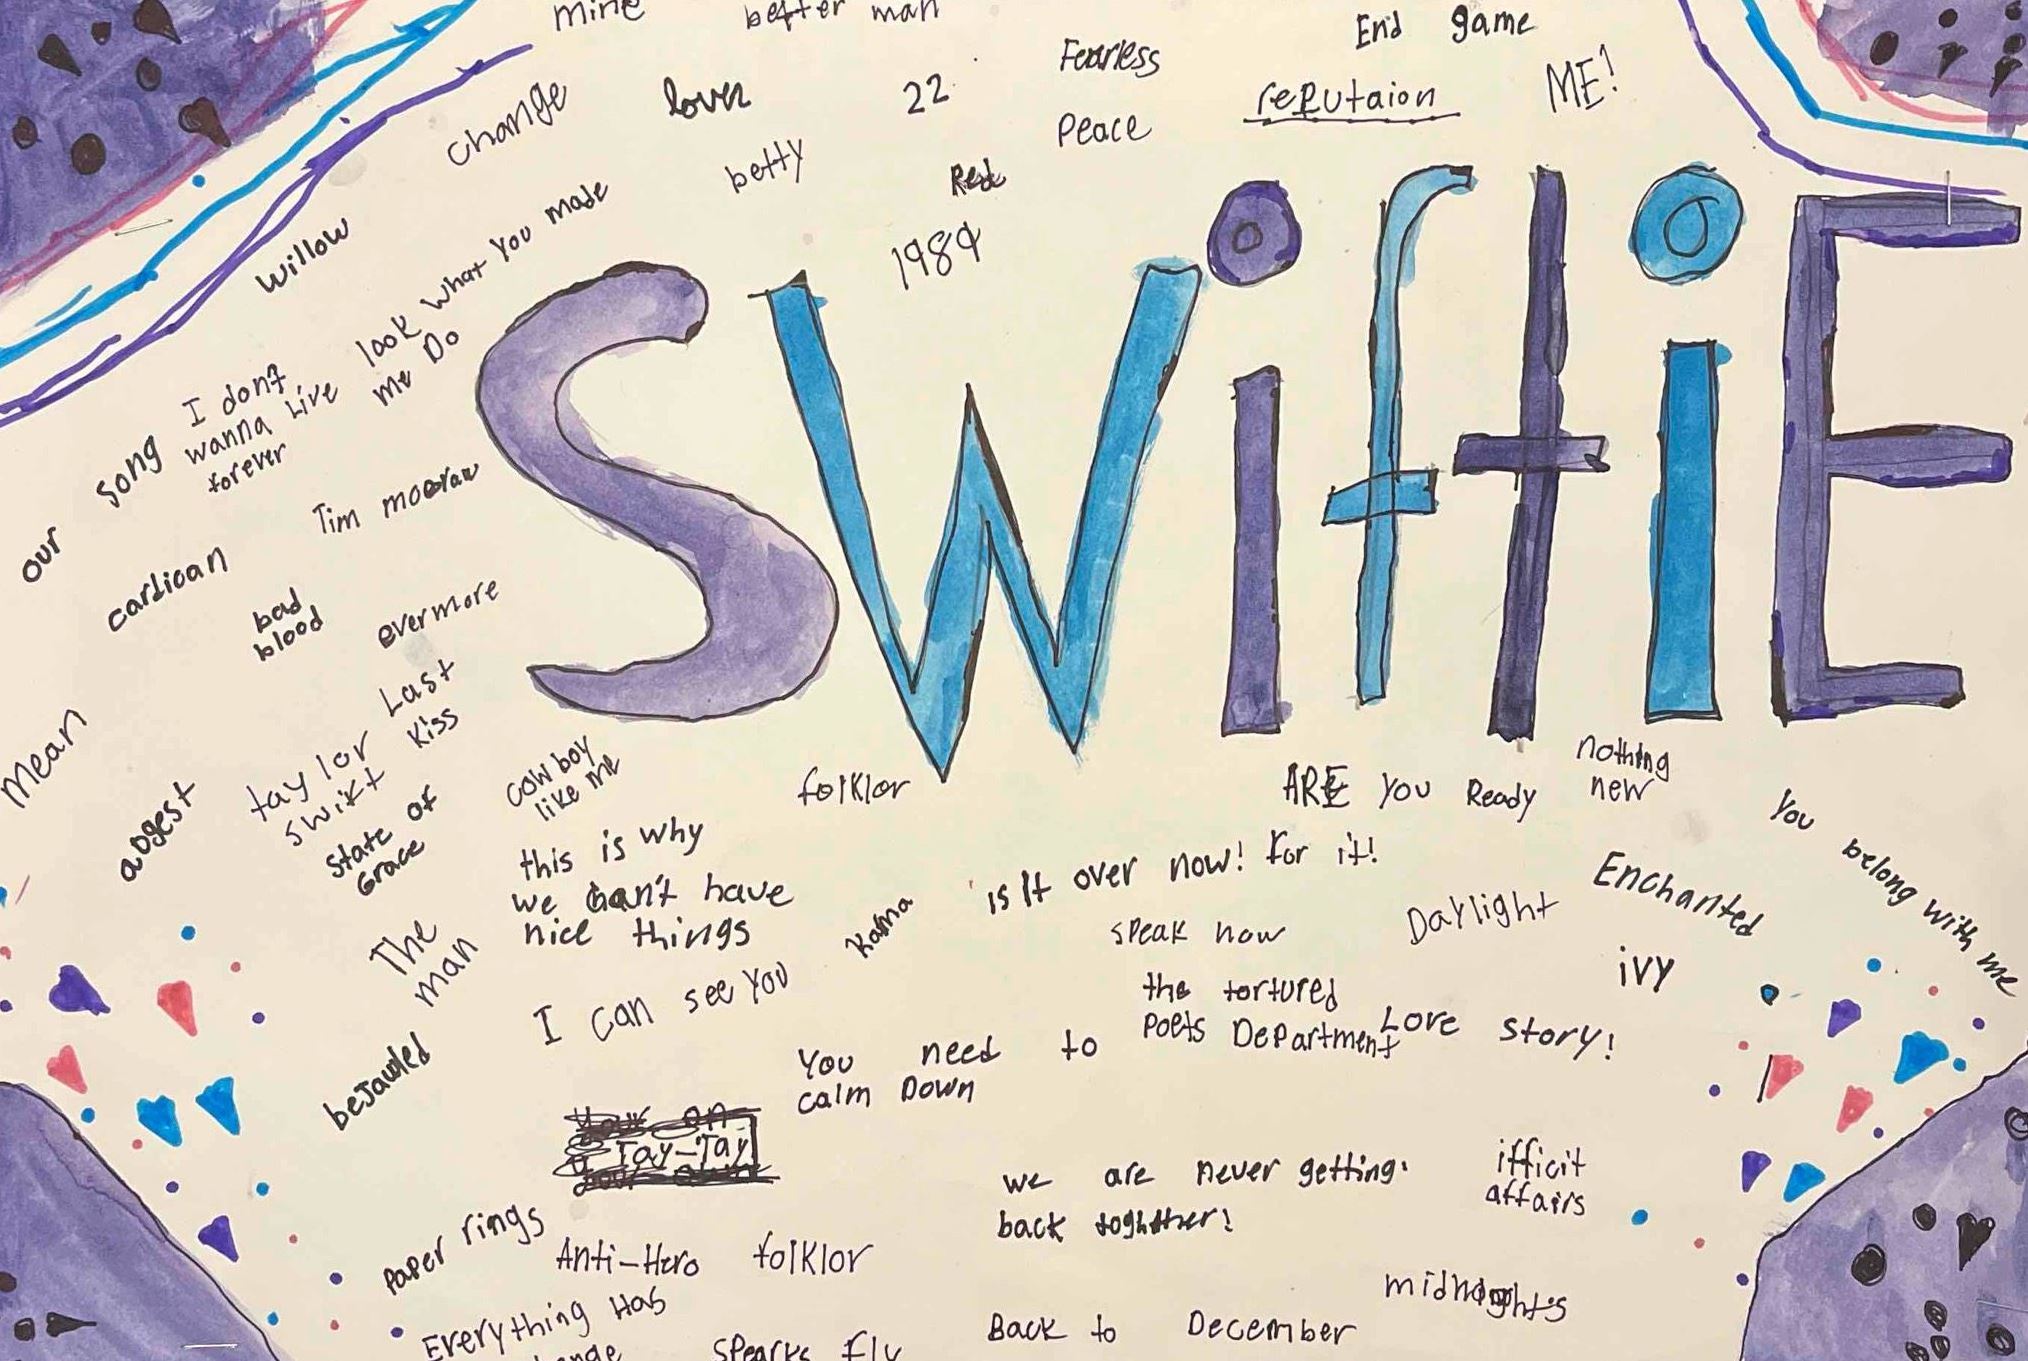 mine
better man
End game
Fearless
change
lover
22
reputaion
ME!
Peace
betty
Red
willow
look what you made
me Do
1989
SWiftiE
I dont
wanna Live
forever
our song
Tim mocraw
cardioan
bad
blood
evermore
Last
Kiss
mean
taylor
swikt
abgest
State of
Grace
cowboy
like me
folklor
ARE you Ready
for it!
nothing
new
you belong with me
this is why
we can't have
nice things
is It over now!
Kama
Enchanted
speak now
Daylight
The
man
ivy
I can see you
the tortured
poets Department
Love story!
You need to
calm Down
bejawled
Tay-Tay
we are never getting
back toghther!
ifficit
affairs
Paper rings
Anti-Hero
folklor
midnaght's
Everything Has
Back to December
sparks fly